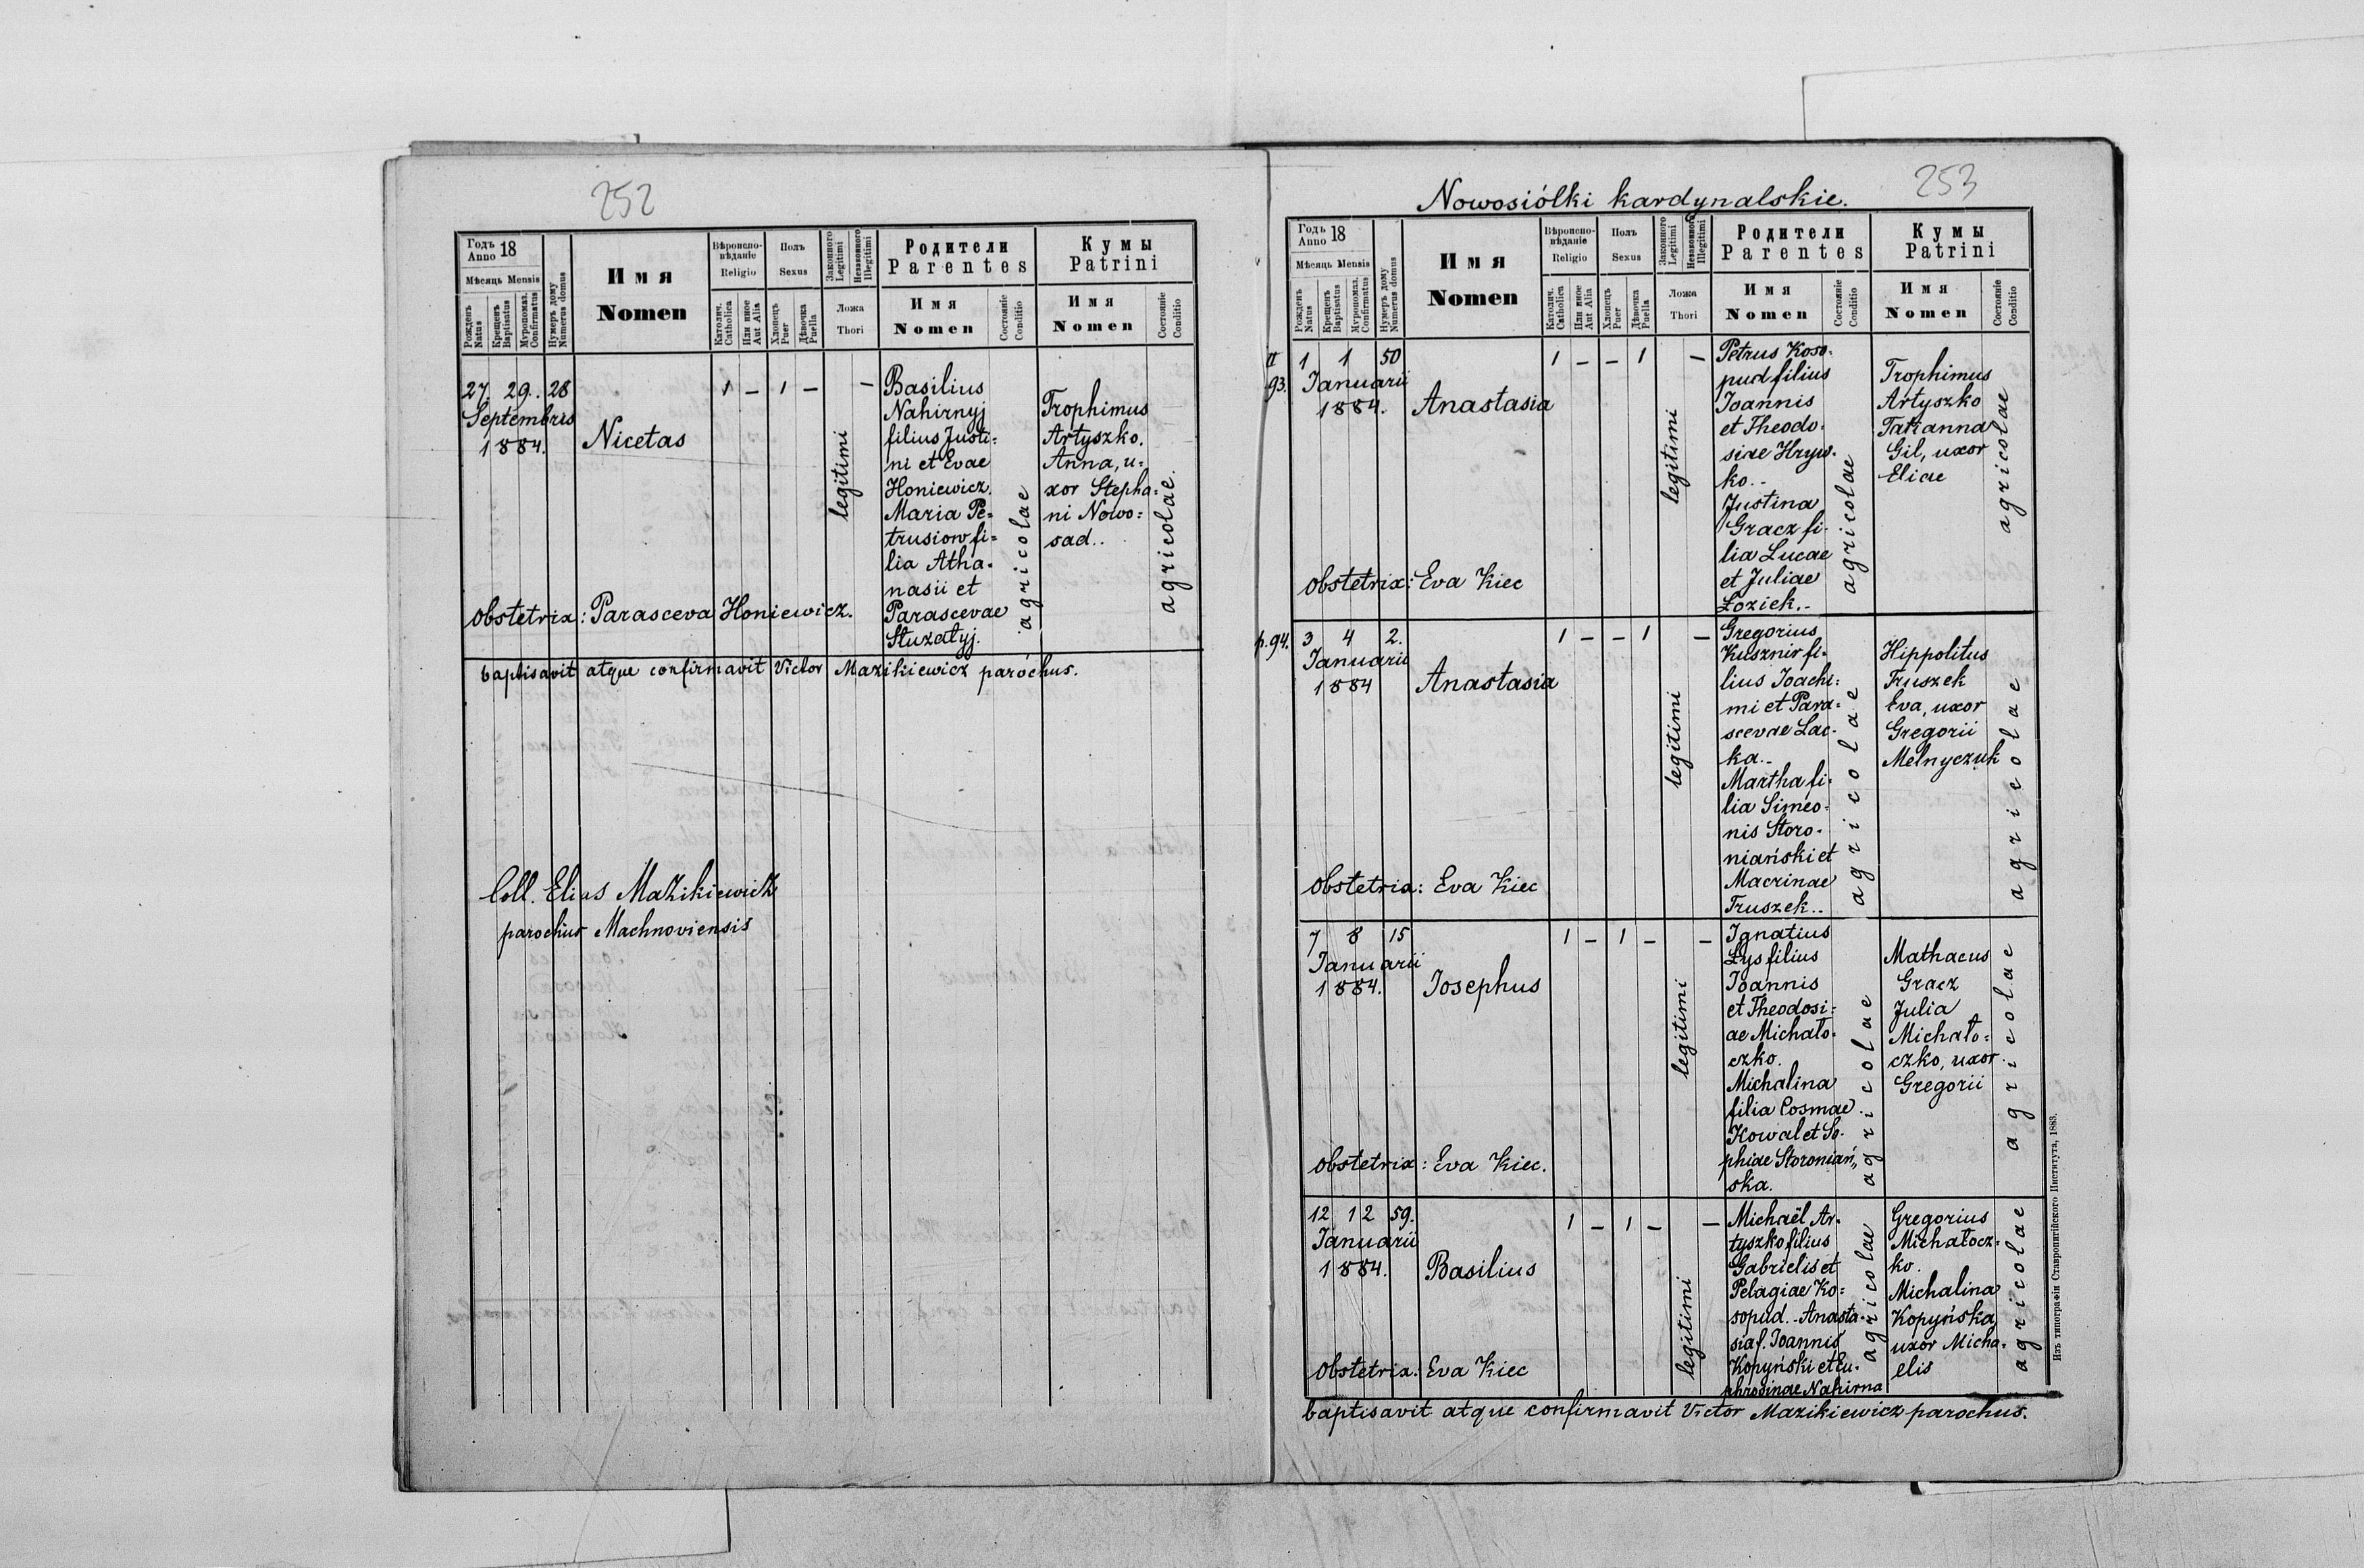 252
Годъ 18
Anno
Мѣсяць Mensis
Рожденъ
Natus
Крещенъ
Baptisatus
Муропомаз.
Confirmatus
Нумеръ дому
Numerus domus
Имя
Nomen
Вѣроиспо-
вѣданіе
Religio
Католич.
Catholica
Или иное
Aut Alia
Полъ
Sexus
Хлопецъ
Puer
Дѣвочка
Puella
Законного
Legitimi
Незаконного
Illegitimi
Ложа
Thori
Родители
Parentes
Имя
Nomen
Состояніе
Conditio
Кумы
Patrini
Имя
Nomen
Состояніе
Conditio
27. 29. 28
Septembris
1884.
Nicetas
1 – 1 – –
legitimi
Basilius
Nahirnyj
filius Justi=
ni et Evae
Honiewicz.
Maria Pe=
trusiow fi=
lia Atha-
nasii et
Parascevae
Stuzatyj.
agricolae
Trophimus
Artyszko.
Anna, u=
xor Stepha=
ni Nowo=
sad..
agricolae.
obstetrix: Parasceva Honiewicz.
baptisavit atque confirmavit Victor Mazikiewicz parochus.
Coll. Elias Mazikiewicz
parochus Machnoviensis
Nowosiólki kardynalskie.
253
Годъ 18
Anno
Мѣсяць Mensis
Рожденъ
Natus
Крещенъ
Baptisatus
Муропомаз.
Confirmatus
Нумеръ дому
Numerus domus
Имя
Nomen
Вѣроиспо-
вѣданіе
Religio
Католич.
Catholica
Или иное
Aut Alia
Полъ
Sexus
Хлопецъ
Puer
Дѣвочка
Puella
Законного
Legitimi
Незаконного
Illegitimi
Ложа
Thori
Родители
Parentes
Имя
Nomen
Состояніе
Conditio
Кумы
Patrini
Имя
Nomen
Состояніе
Conditio
93.
1 1 50
Januarii
1884.
Anastasia
1 – – 1 –
legitimi
Petrus Koso-
pud filius
Joannis
et Theodo-
siae Hryw-
ko.-
Justina
Gracz fi-
lia Lucae
et Juliae
Łoziek.-
agricolae
Trophimus
Artyszko
Tatianna
Gil, uxor
Eliae
agricolae
obstetrix: Eva Kiec
p.94.
3 4 2.
Januarii
1884
Anastasia
1 – – 1 –
legitimi
Gregorius
Kusznir fi-
lius Joachi=
mi et Para=
scevae Lac-
ka.-
Martha fi-
lia Simeo-
nis Storo-
niański et
Macrinae
Truszek..
agricolae
Hippolitus
Truszek
Eva, uxor
Gregorii
Melnyczuk
agricolae
obstetrix: Eva Kiec
7 8 15
Januarii
1884.
Josephus
1 – 1 – –
legitimi
Ignatius
Łys filius
Joannis
et Theodosi=
ae Michało-
czko.
Michalina
filia Cosmae
Kowal et So-
phiae Storoniań„
ska.
agricolae
Mathaeus
Gracz
Julia
Michało=
czko, uxor
Gregorii
agricolae
obstetrix: Eva Kiec.
12 12 59.
Januarii
1884.
Basilius
1 – 1 – –
legitimi
Michaël Ar-
tyszko filius
Gabrielis et
Pelagiae Ko=
sopud.-Anasta-
sia f. Joannis
Kopyński et Eu-
phrosinae Nahirna
agricolae
Gregorius
Michałocz=
ko.
Michalina
Kopyńska
uxor Micha-
elis
agricolae
obstetrix: Eva Kiec
baptisavit atque confirmavit Victor Mazikiewicz parochus.
Изъ типографіи Ставропигійского Института, 1883.